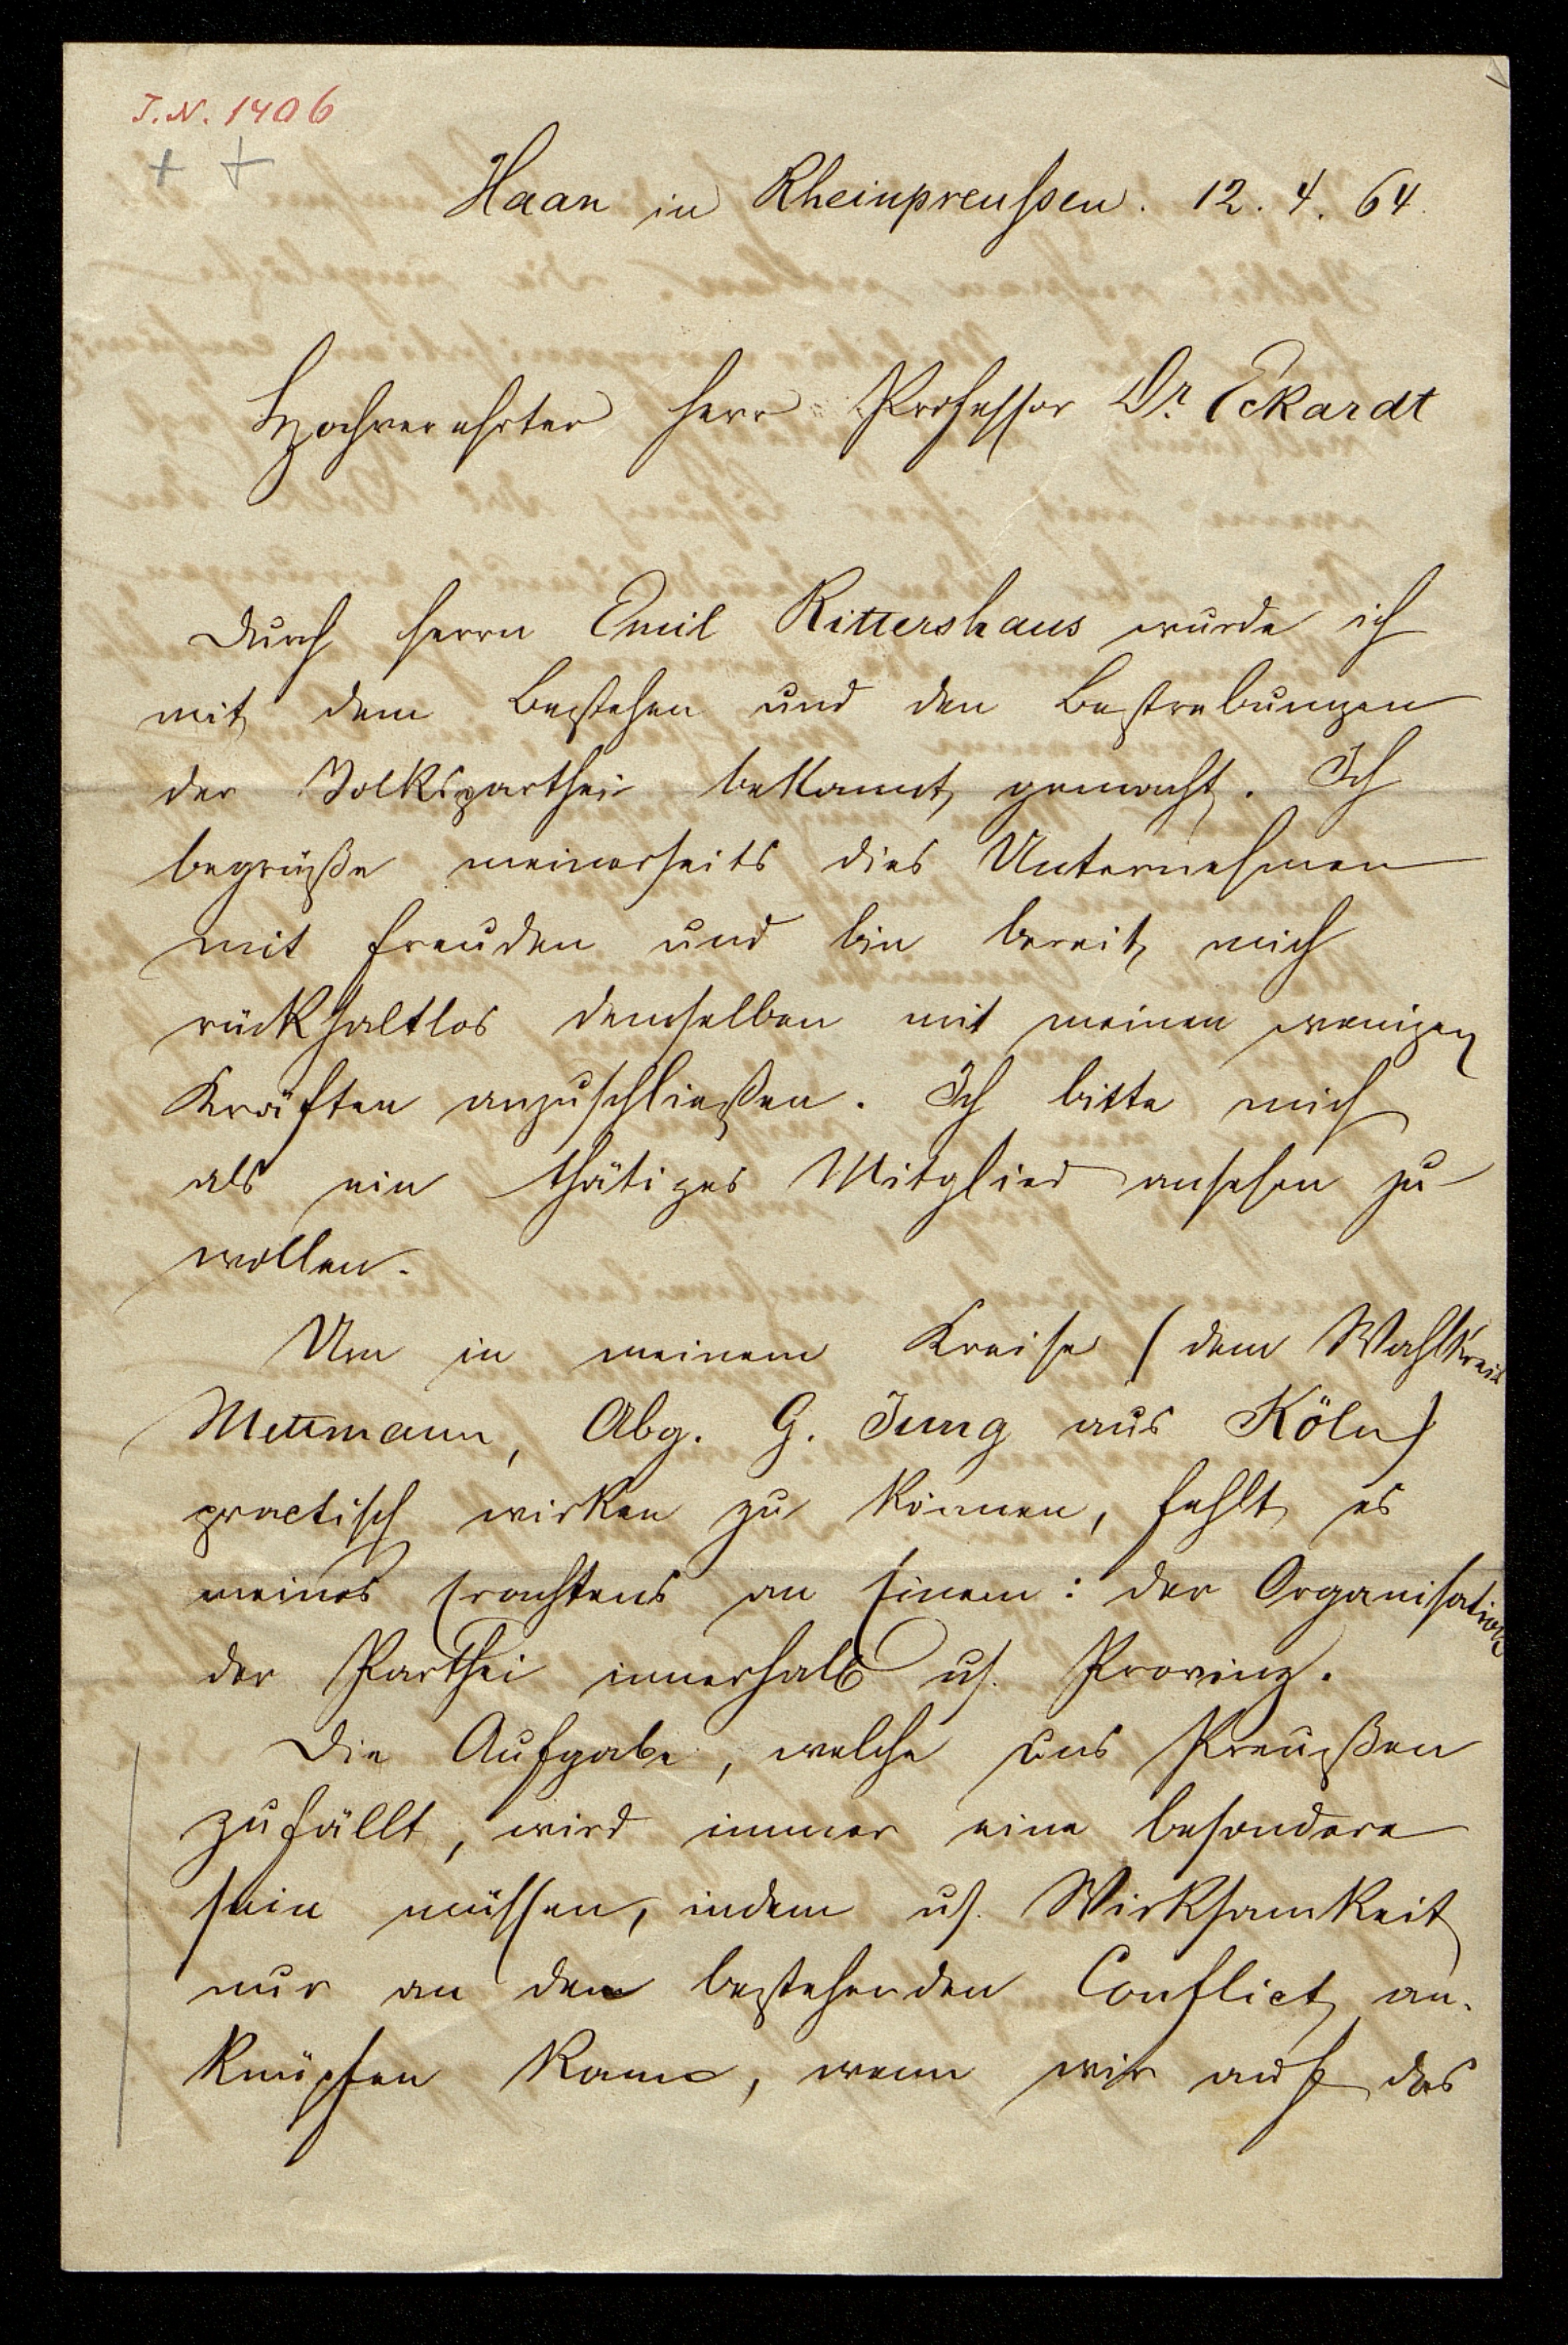 J.N. 1406
+ +
Haan in Rheinpreußen. 12. 4. 64.
Hochverehrter Herr Professor Dr. Eckardt
Durch Herrn Emil Rittershaus wurde ich
mit dem Bestehen und den Bestrebungen
der Volksparthei bekannt gemacht. Ich
begrüße meinerseits dies Unternehmen
mit Freuden und bin bereit, mich
rückhaltlos demselben mit meinen wenigen
Kräften anzuschließen. Ich bitte mich
als ein thätiges Mitglied ansehen zu
wollen.
Um in meinem Kreise (dem Wahlkreis
Mettmann, Abg. G. Jung aus Köln)
practisch wirken zu können, fehlt es
meines Erachtens an Einem: der Organisation
der Parthei innerhalb us. Provinz.
Die Aufgabe, welche uns Preußen
zufällt, wird immer eine besondere
sein müssen, indem us. Wirksamkeit
nur an den bestehenden Conflict an-
knüpfen kann, wenn wir auf das